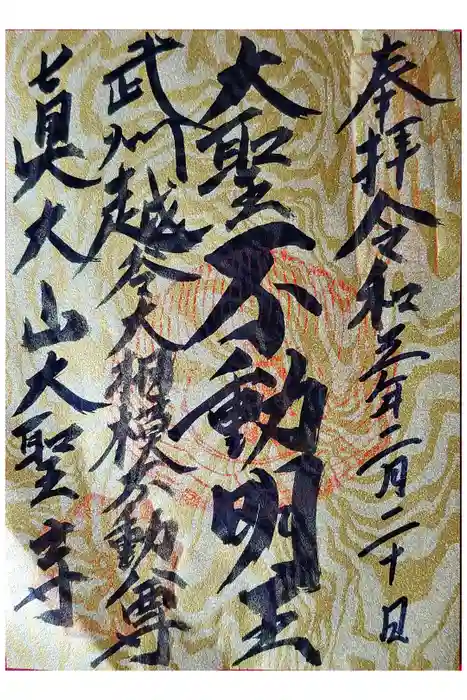 奉拝令和五年二月二十日
大聖不動明王
武州越谷大相模不動尊
真大山大聖寺